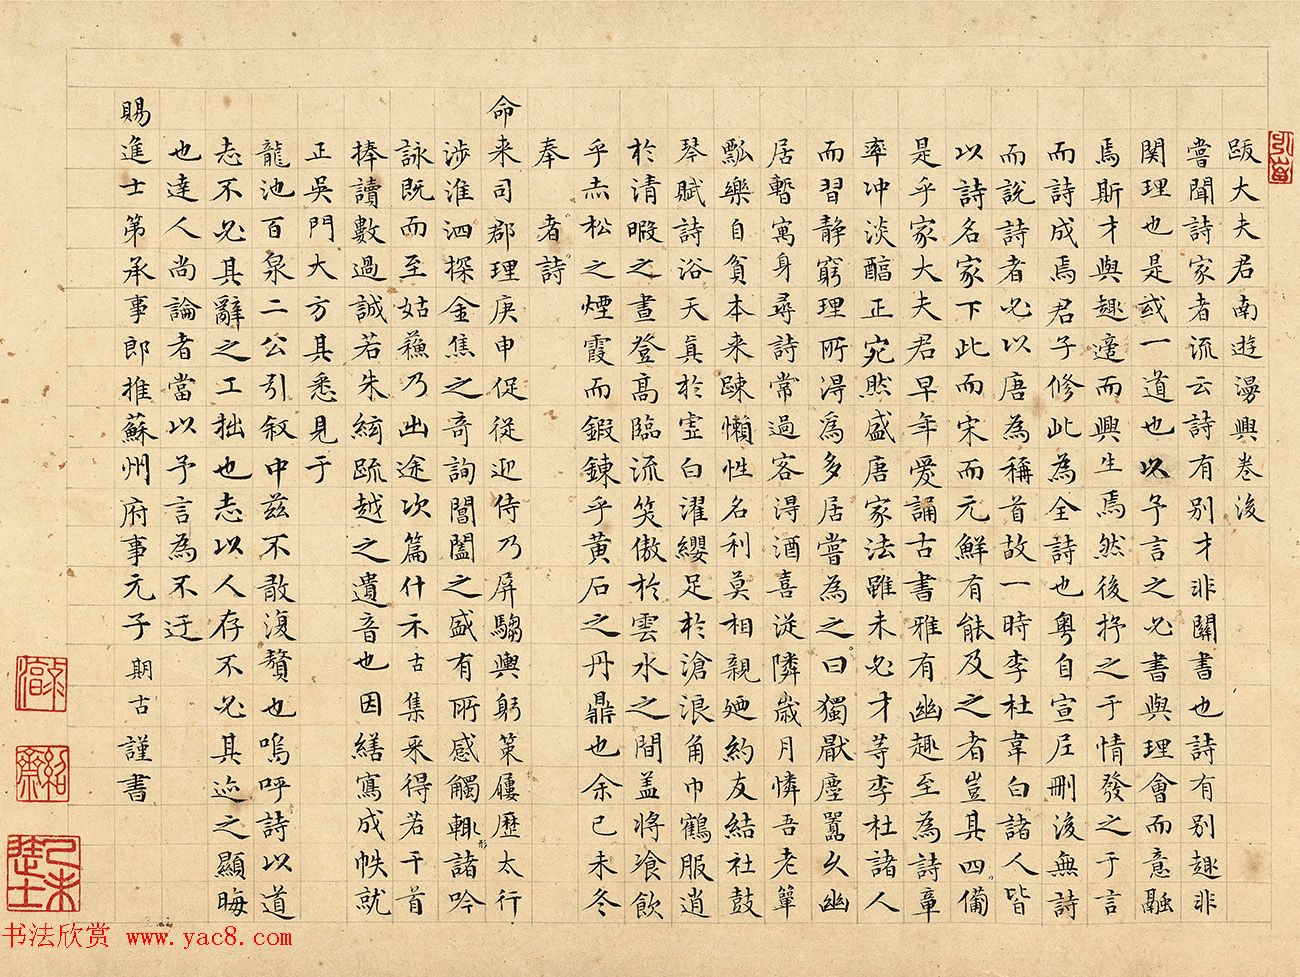 跋大夫君南遊漫興卷後
嘗聞詩家者流云詩有别才非關書也詩有别趣非
関理也是或一道也以予言之必書與理會而意融
焉斯才與趣適而興生焉然後抒之于情發之于言
而詩成焉君子修此為全詩也粤自宣尼刪後無詩
而說詩者必以唐為稱首故一時李杜韋白諸人皆
以詩名家下此而宋而元鮮有能及之者豈其四備
是乎家大夫君早年愛誦古書雅有幽趣至為詩章
率冲淡醞正宛然盛唐家法雖未必才等李杜諸人
而習静窮理所得爲多居嘗為之曰獨厭塵囂久幽
居暫寓身尋詩常過客得酒喜従隣歳月憐吾老簞
瓢樂自貧本来踈懶性名利莫相親廼約友結社鼓
琴賦詩浴天真於虚白濯纓足於滄浪角巾鶴服逍
於清暇之晝登髙臨流笑傲於雲水之間盖将飱飲
乎赤松之煙霞而鍛錬乎黄石之丹鼎也余已未冬
奉者詩
命来司郡理庚申促従迎侍乃屏騶輿躬策屨歷太行
涉淮泗探金焦之奇詢閶闔之盛有所感觸輙形諸吟
詠既而至姑蘓乃出途次篇什示古集采得若干首
捧讀數過誠若朱絃䟽越之遺音也因繕寫成帙就
正吳門大方其悉見于
龍池百泉二公引叙中兹不敢復贅也嗚呼詩以道
志不必其辭之工拙也志以人存不必其迹之顯晦
也達人尚論者當以予言為不迂
賜進士第承事郎推蘇州府事元子期古謹書
己未進士
书法欣赏 www.yac8.com